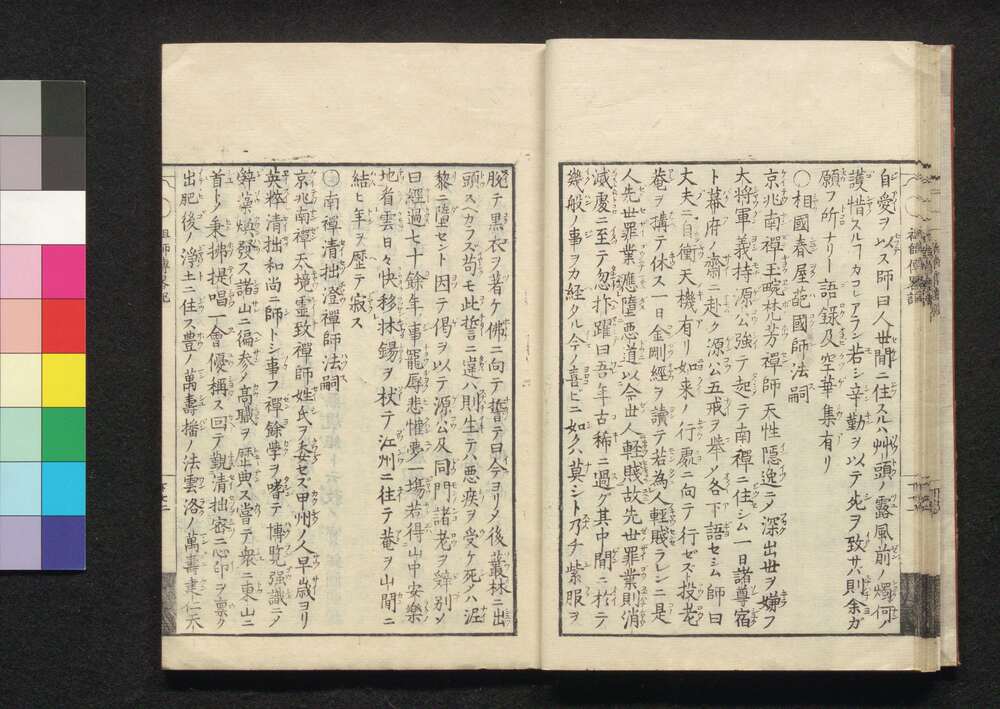 自愛ヲ以ス師曰人世間ニ住スルハ艸頭ノ露風前ノ燭何ノ
護惜スルヿカコレアラン若シ辛勤ヲ以テ死ヲ致サバ則余ガ
願フ所ナリ語録及空華集有リ
〇相國春屋葩國師法嗣
京兆南禪玉畹梵芳禪師天性隱逸ノ深出世ヲ嫌フ
大將軍義持源公強テ起テ南禪ニ住シム一日諸尊宿
ト幕府ノ齋ニ赴ク源公五戒ヲ舉ノ各下語セシム師曰
大夫ニ自衝天機有リ如来ノ行處ニ向テ行ゼズト投老
庵ヲ搆テ休ス一日金剛經ヲ讀テ若為人輕賤ラレンニ是
人先世罪業應墮惡道以今世人輕賤故先世罪業則消
滅慶ニ至テ忽抃躍曰吾年古稀ニ過グ其中間ニ於テ
幾般ノ事ヲカ経タル今ノ喜ビニ如クハ莫シト乃チ紫服ヲ
脱テ黒衣ヲ著ケ佛ニ向テ誓テ曰今ヨリノ後叢林ニ出
頭スベカラス苟モ此誓ニ違ハ則生テハ悪疾ヲ受ケ死ノハ泥
黎ニ墮セント因テ偈ヲ以テ源公及同門諸老ヲ辞別ノ
曰經過七十餘年事寵辱悲懽夢一塲若得山中安樂
地省雲日々快移牀錫ヲ杖テ江州ニ往テ菴ヲ山間ニ
結ヒ年ヲ歴テ寂ス
〇南禪清拙澄禪師法嗣
京兆南禪天境靈致禪師姓氏ヲ委セズ甲州ノ人早歳ヨリ
英粹清拙和尚ニ師トシ事フ禪餘學ヲ嗜テ博覧強識ニノ
辞藻煥發ス諸山ニ徧参ノ高職ヲ歴典ス嘗テ衆ニ東山ニ
首トノ秉拂提唱一會優稱ス回テ覲清拙密ニ心印ヲ禀ク
出肥後ノ浄土ニ住ス豊ノ萬壽播ノ法雲洛ノ萬壽建仁天